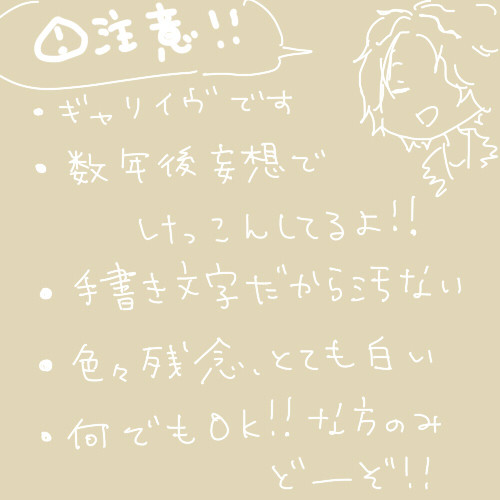 ⚠注意!!
・ギャリイヴです
・数年後妄想で
けっこんしてるよ!!
・手書き文字だから汚ない
・色々残念、とても白い
・何でもOK!!な方のみ
どーぞ!!